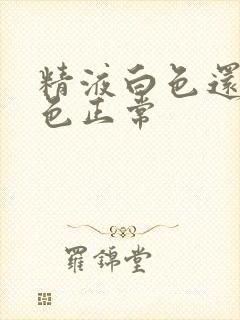 精液白色還
色正常
羅錦堂